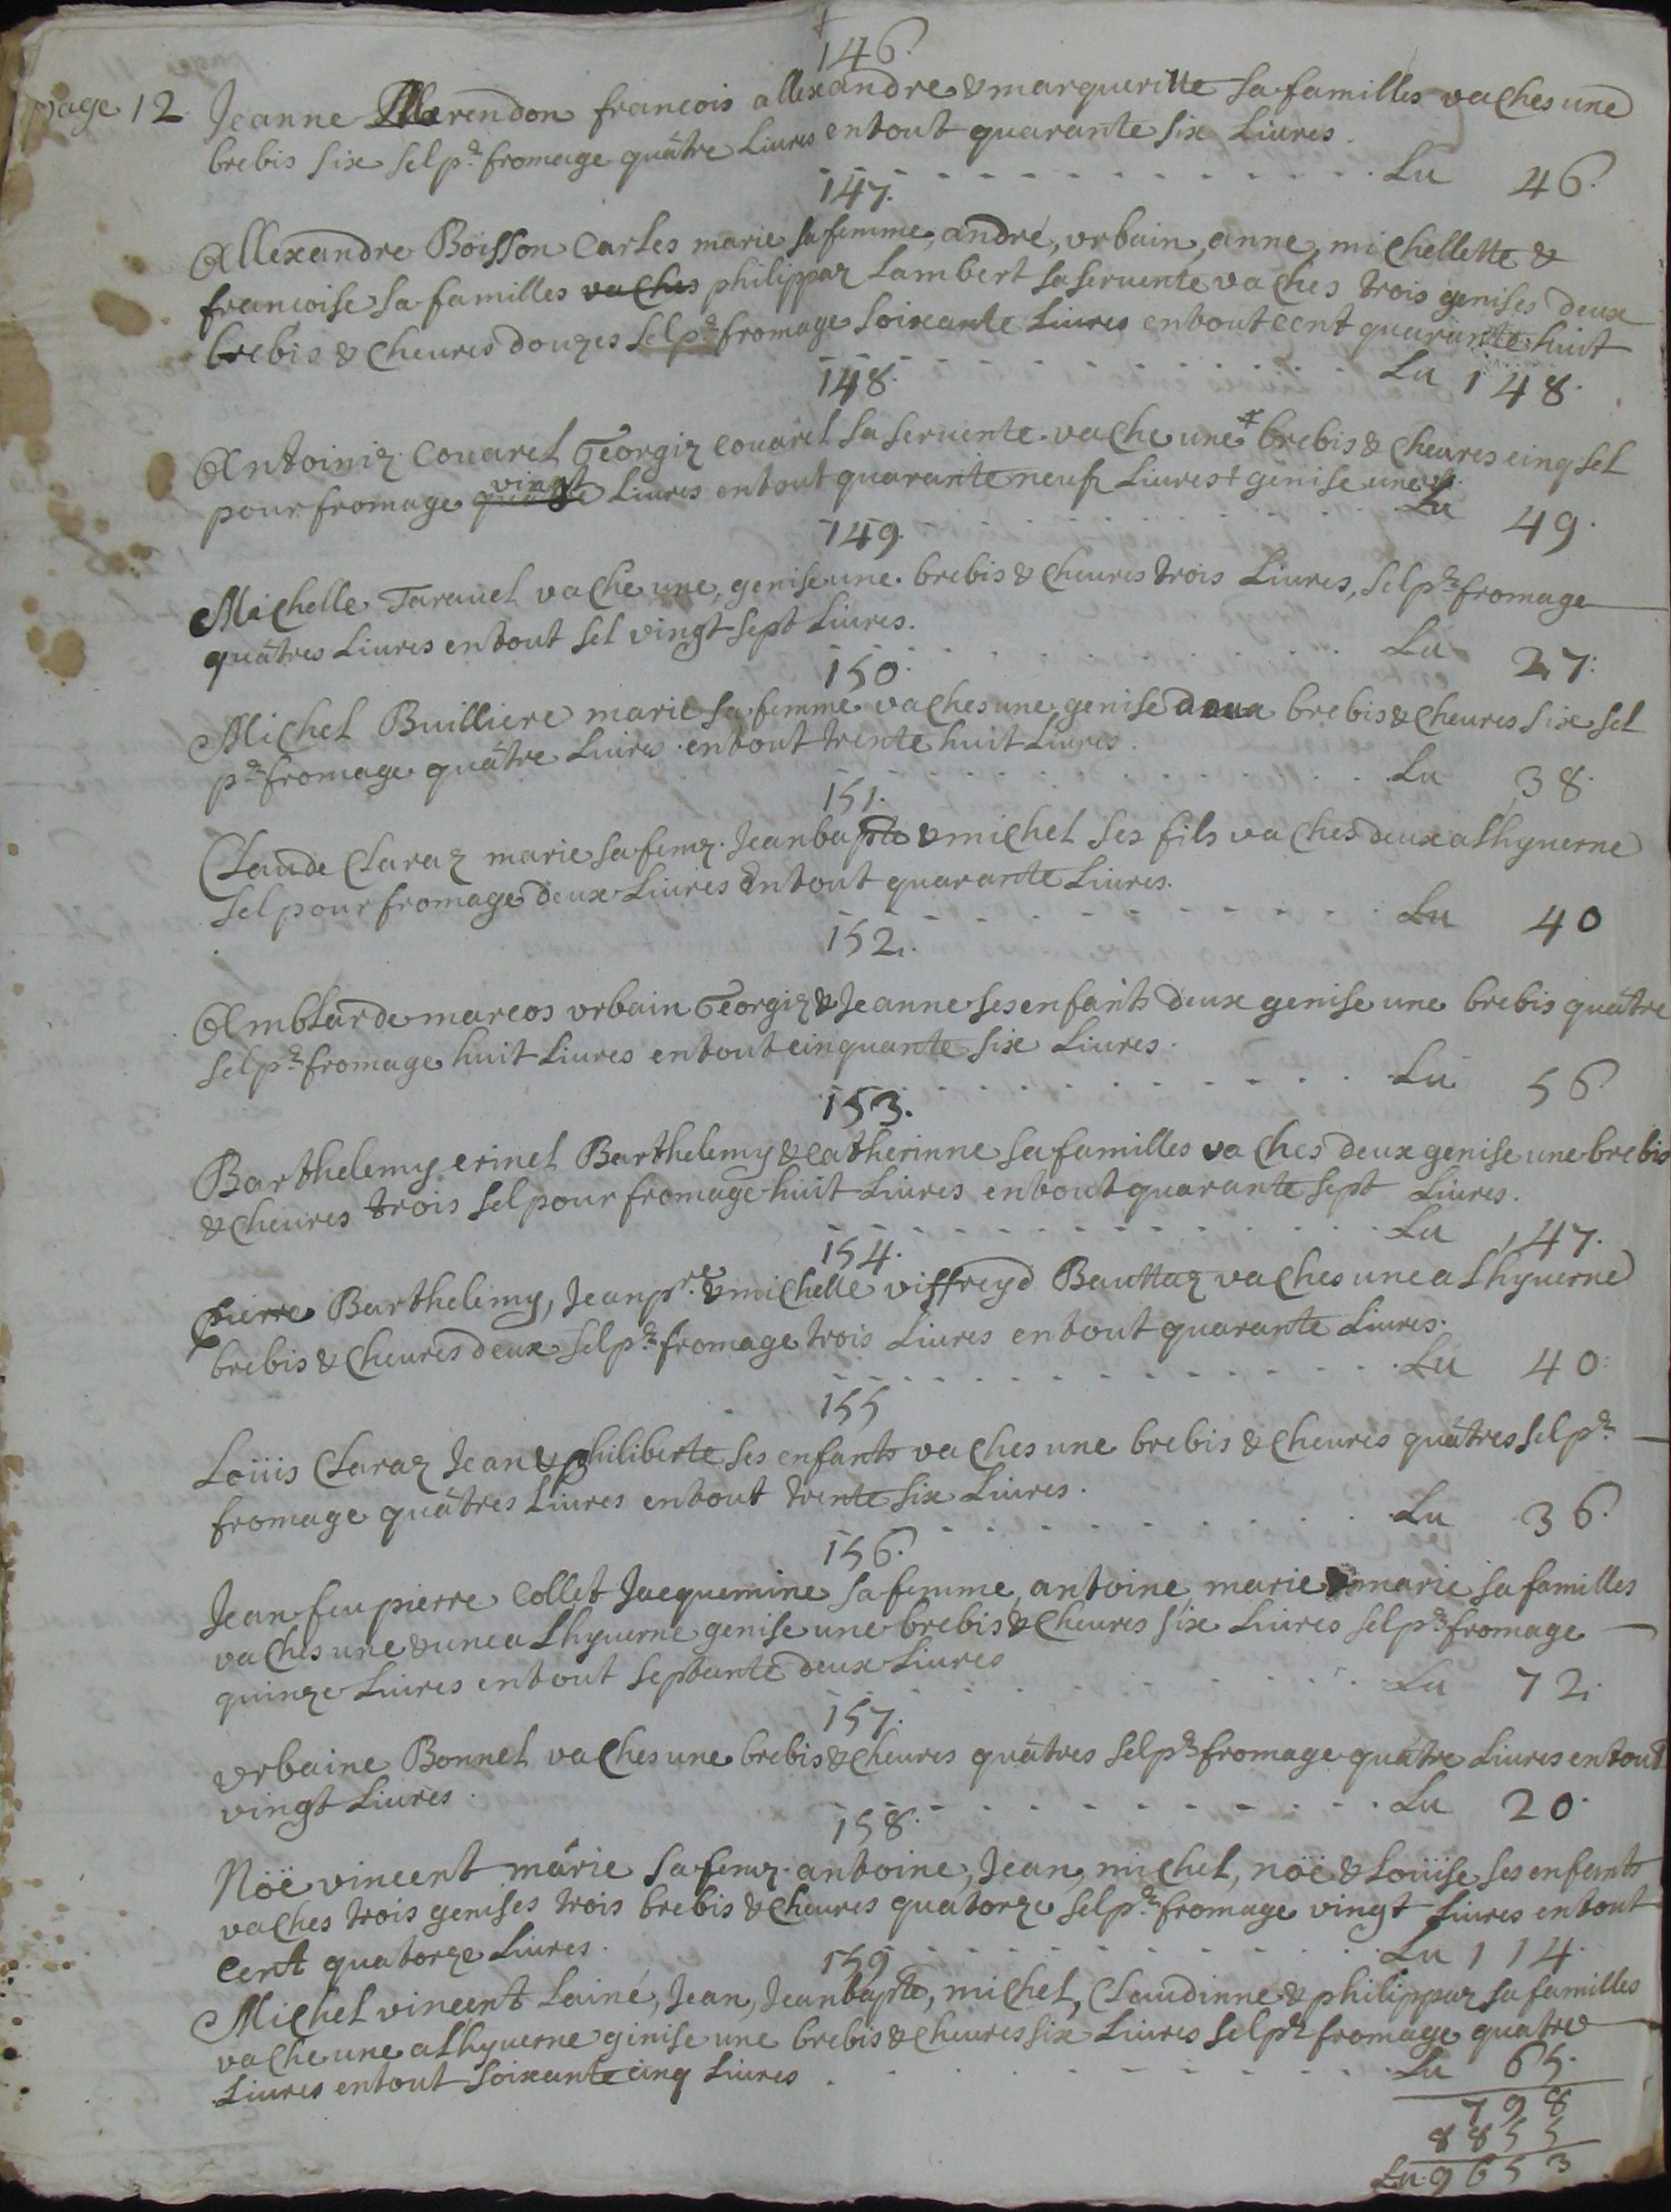 146.
page 12 Jeanne Merendon francois allexandre & margueritte sa familles vaches une
brebis six sel pr fromage quâtre Liures entout quarante six Liures.
Lu 46.
147.
Allexandre Boisson Carles marie sa femme, andré, vrbain, anne, michellette &
francoise sa familles vaches philippaz Lambert sa seruente vaches trois genises deux
brebis & cheures douzes sel pr fromage soixante Liures entout cent quarante huit
Lu 148.
148.
Antoiniz Couarel Georgiz couarel sa seruente vache une + brebis & cheures cinq sel
vingt
pour fromage quâtre Liures entout quarante neufz Liures + genise une
Lu 49.
149.
Michelle Tarauel vache une, genise une. brebis & cheures trois Liures, sel pr fromage
quâtres Liures entout sel vingt sept Liures.
Lu 27.
150.
Michel Buılliere marie sa femme vaches une genise deux brebis & cheures six sel
pr fromage quâtre Liures entout trente huit Liures.
Lu 38.
151.
Claude Claraz marie sa femz. Jean bapte & michel ses fils vaches deux a Lhyuerne
sel pour fromage deux Liures Entout quarante Liures.
Lu 40
152.
Amblarde marcos vrbain Georgiz & Jeanne ses enfants deux genise une brebis quâtre
sel pr fromage huit Liures entout cinquante six Liures.
Lu 56
153.
Barthelemy crinel Barthelemy & catherinne sa familles vaches deux genise une brebis
& cheures trois sel pour fromage huit Liures entout quarante sept Liures.
Lu 47.
154.
Pierre Barthelemy, Jean pre. & michelle viffreyd Bauttaz vaches une a Lhyuerne
brebis & cheures deux sel pr fromage trois Liures entout quarante Liures.
Lu 40.
155
Loüis Claraz Jean & philiberte ses enfants vaches une brebis & cheures quâtres sel pr
fromage quâtres Liures entout trente six Liures.
Lu 36.
156.
Jean feu pierre Collet Jacquemine sa femme, antoine, marie & marie sa familles
vaches une & une a Lhyuerne genise une brebis & cheures six Liures sel pr fromage
quinze Liures entout septante deux Liures
Lu 72.
157.
vrbaine Bonnel vaches une brebis & cheures quâtres sel pr fromage quâtre Liures entout
vingt Liures.
Lu 20.
158.
Nöë vincent marie sa femz. antoine, Jean, michel, nöë & Loüise ses enfants
vaches trois genises trois brebis & cheures quatorze sel pr fromage vingt Liures entout
Cent quatorze Liures.
Lu 114.
159
Michel vincent Lainé, Jean, Jean bapte, michel, Claudinne & philippaz sa familles
vache une a Lhyuerne genise une brebis & cheures six Liures sel pr fromage quatre
Liures entout soixante cinq Liures.
Lu 65.
798
8855
Lu 9653